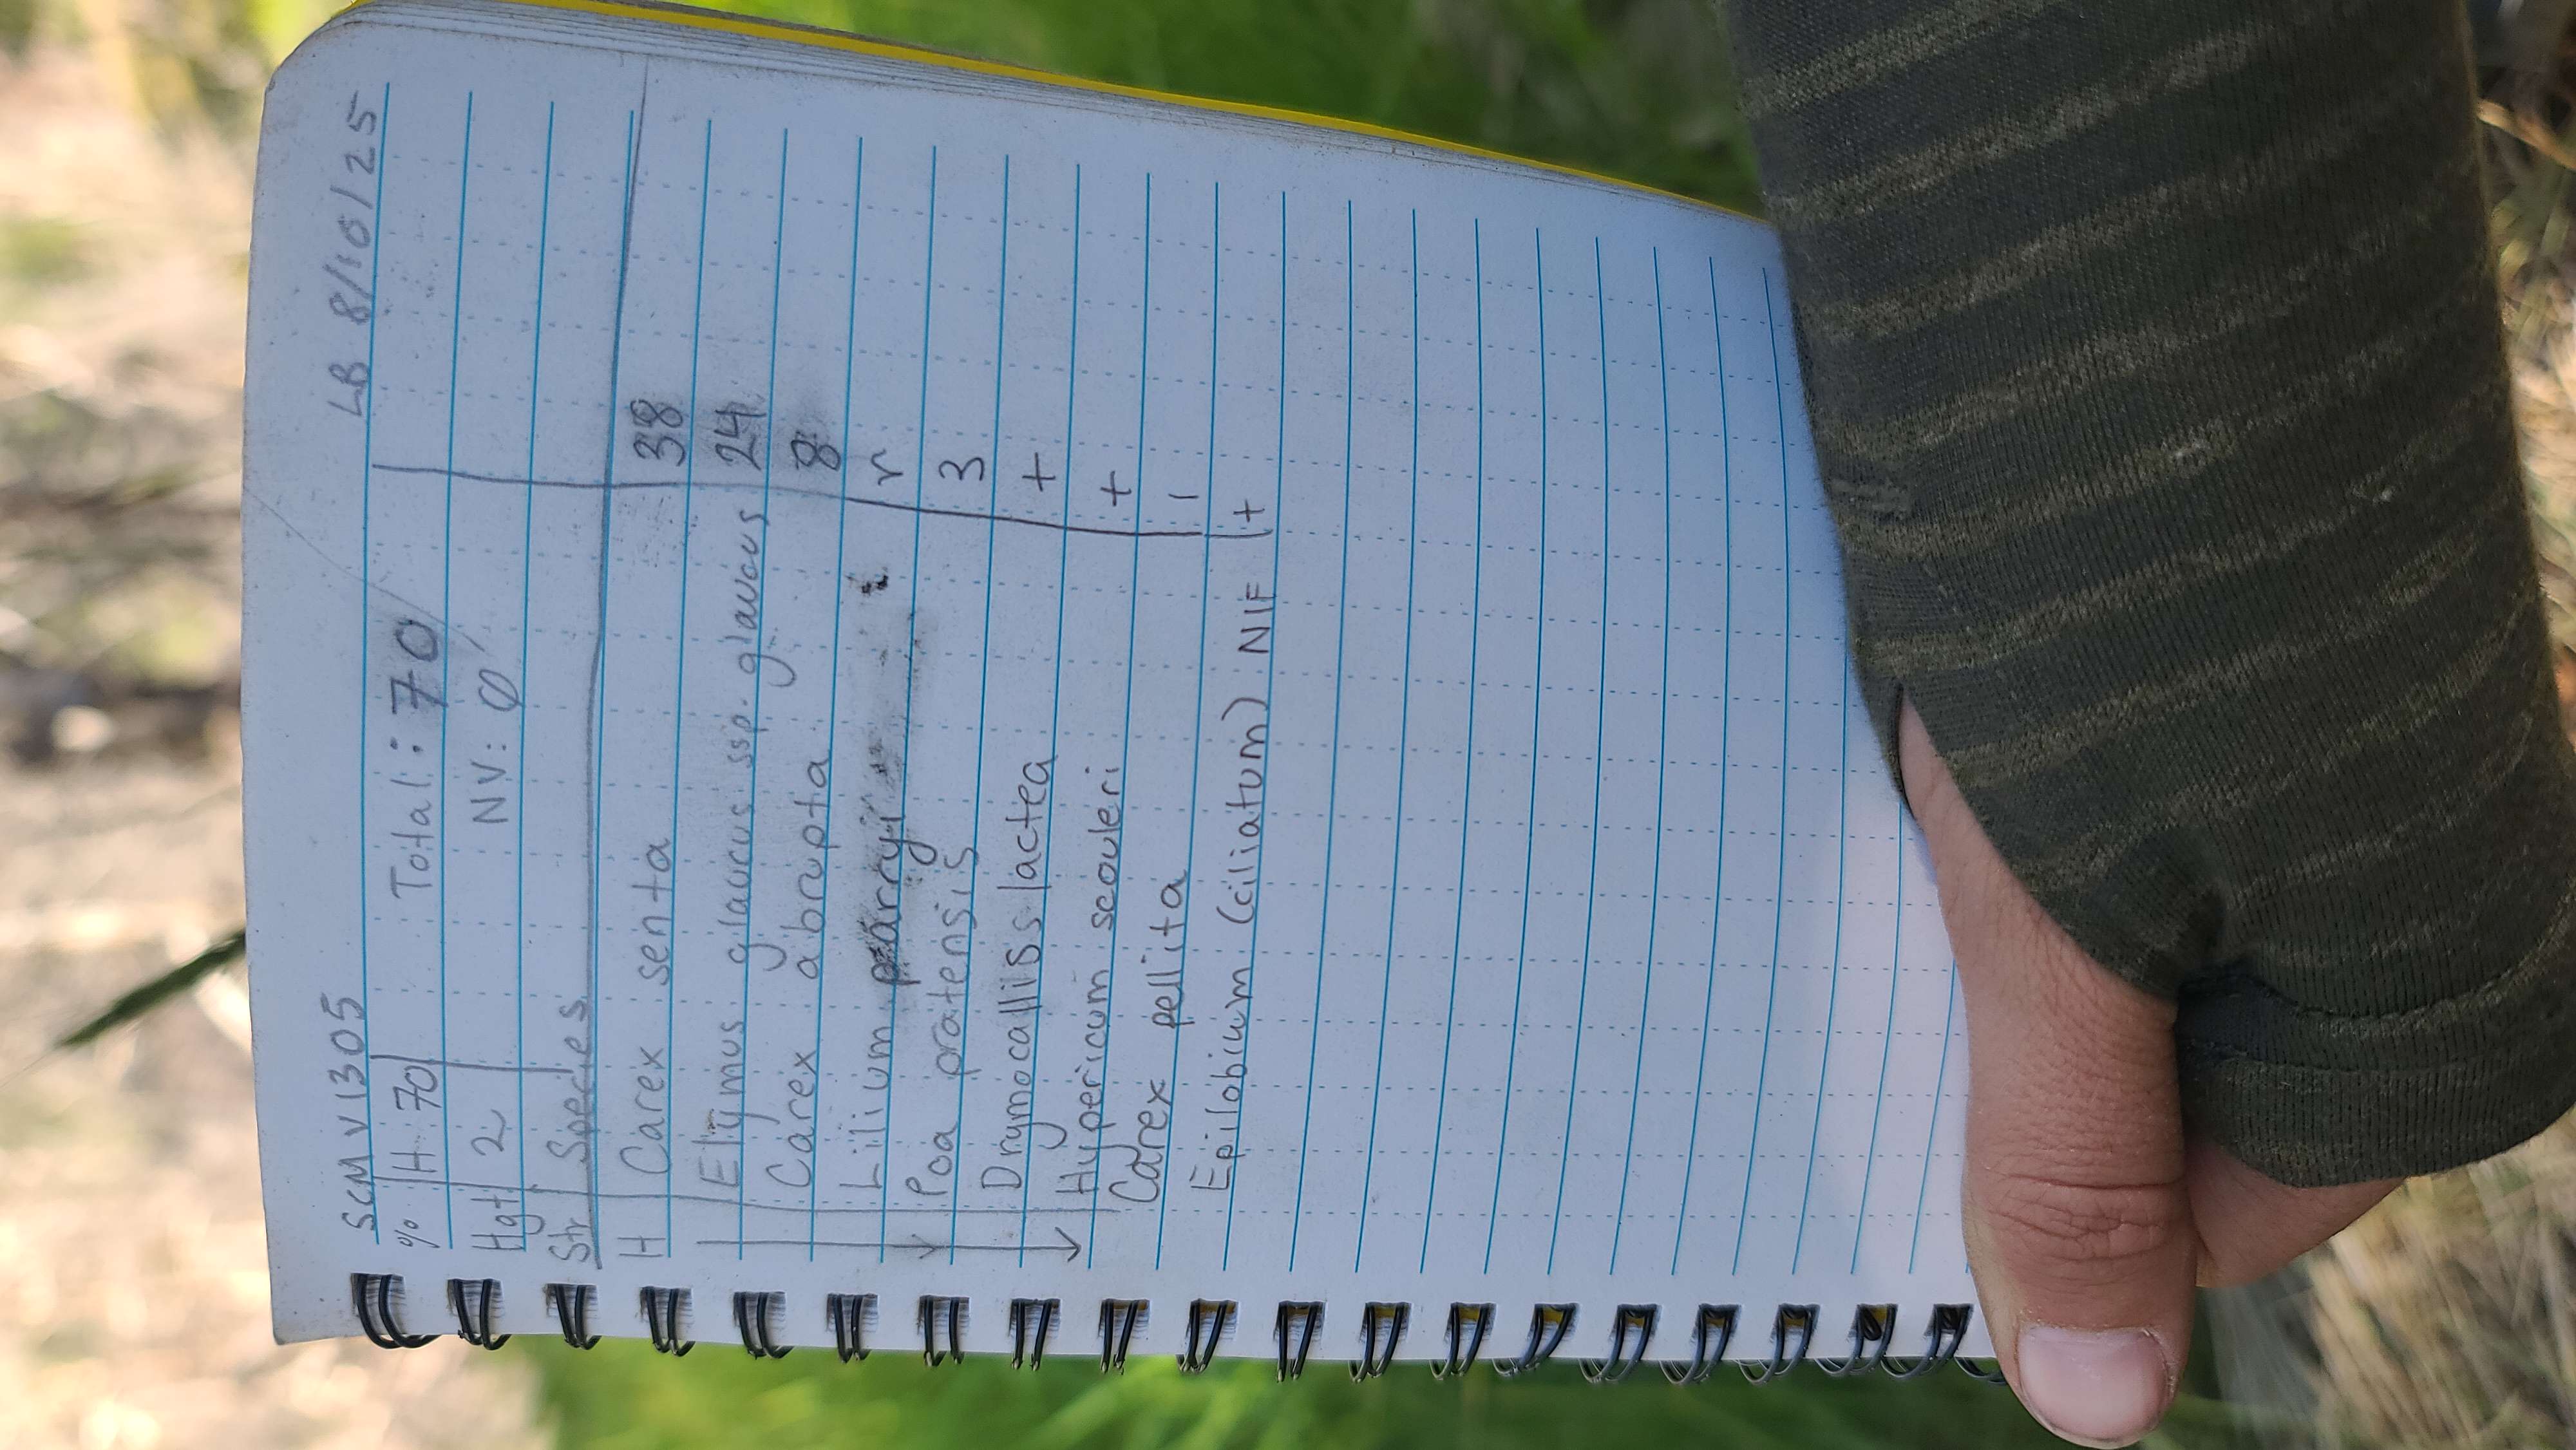 SCMV1305 LB 8/10/25
% H 70 Total: 70
Hgt 2 NV: Ø
Str Species
H Carex senta 38
Elymus glaucus ssp. glaucus 24
Carex abrupta 8
Lilium parryi r
Poa pratensis 3
Drymocallis lactea +
Hypericum scouleri +
Carex pellita 1
Epilobium (ciliatum) NIF +